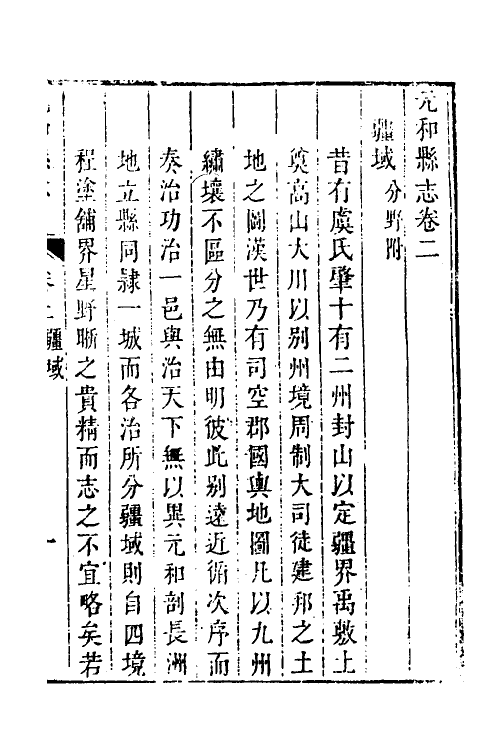 元和縣志卷二
疆域 分野附
昔有虞氏肇十有二州封山以定疆界禹敷土
奠高山大川以别州境周制大司徒建邦之土
地之圖漢世乃有司空郡國輿地圖凡以九州
繡壤不區分之無由明彼此别遠近循次序而
奏治功治一邑與治天下無以異元和剖長洲
地立縣同隷一城而各治所分疆域則自四境
程塗舖界星野晣之貴精而志之不宜略矣若
卷二 疆域 一